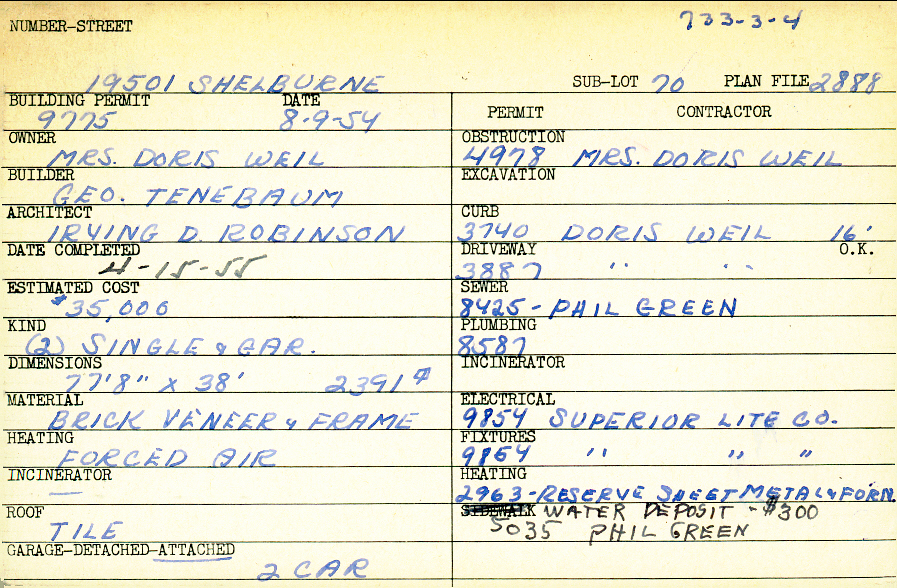 NUMBER-STREET
733-3-4
19501 SHELBURNE
SUB-LOT 70 PLAN FILE 2888
BUILDING PERMIT DATE
9775 8-9-54
OWNER
MRS. DORIS WEIL
BUILDER
GEO. TENEBAUM
ARCHITECT
IRVING D. ROBINSON
DATE COMPLETED
4-15-55
ESTIMATED COST
$35,000
KIND
(2) SINGLE & GAR.
DIMENSIONS
77'8" X 38' 2391 #
MATERIAL
BRICK VENEER & FRAME
HEATING
FORCED AIR
INCINERATOR
—
ROOF
TILE
GARAGE-DETACHED-ATTACHED
2 CAR
PERMIT CONTRACTOR
OBSTRUCTION
4978 MRS. DORIS WEIL
EXCAVATION
CURB
3740 DORIS WEIL 16'
DRIVEWAY O.K.
3887 " "
SEWER
8425 - PHIL GREEN
PLUMBING
8587
INCINERATOR
ELECTRICAL
9854 SUPERIOR LITE CO.
FIXTURES
9854 " " "
HEATING
2963 - RESERVE SHEET METAL & FORN.
SIDEWALK WATER DEPOSIT - $300
5035 PHIL GREEN